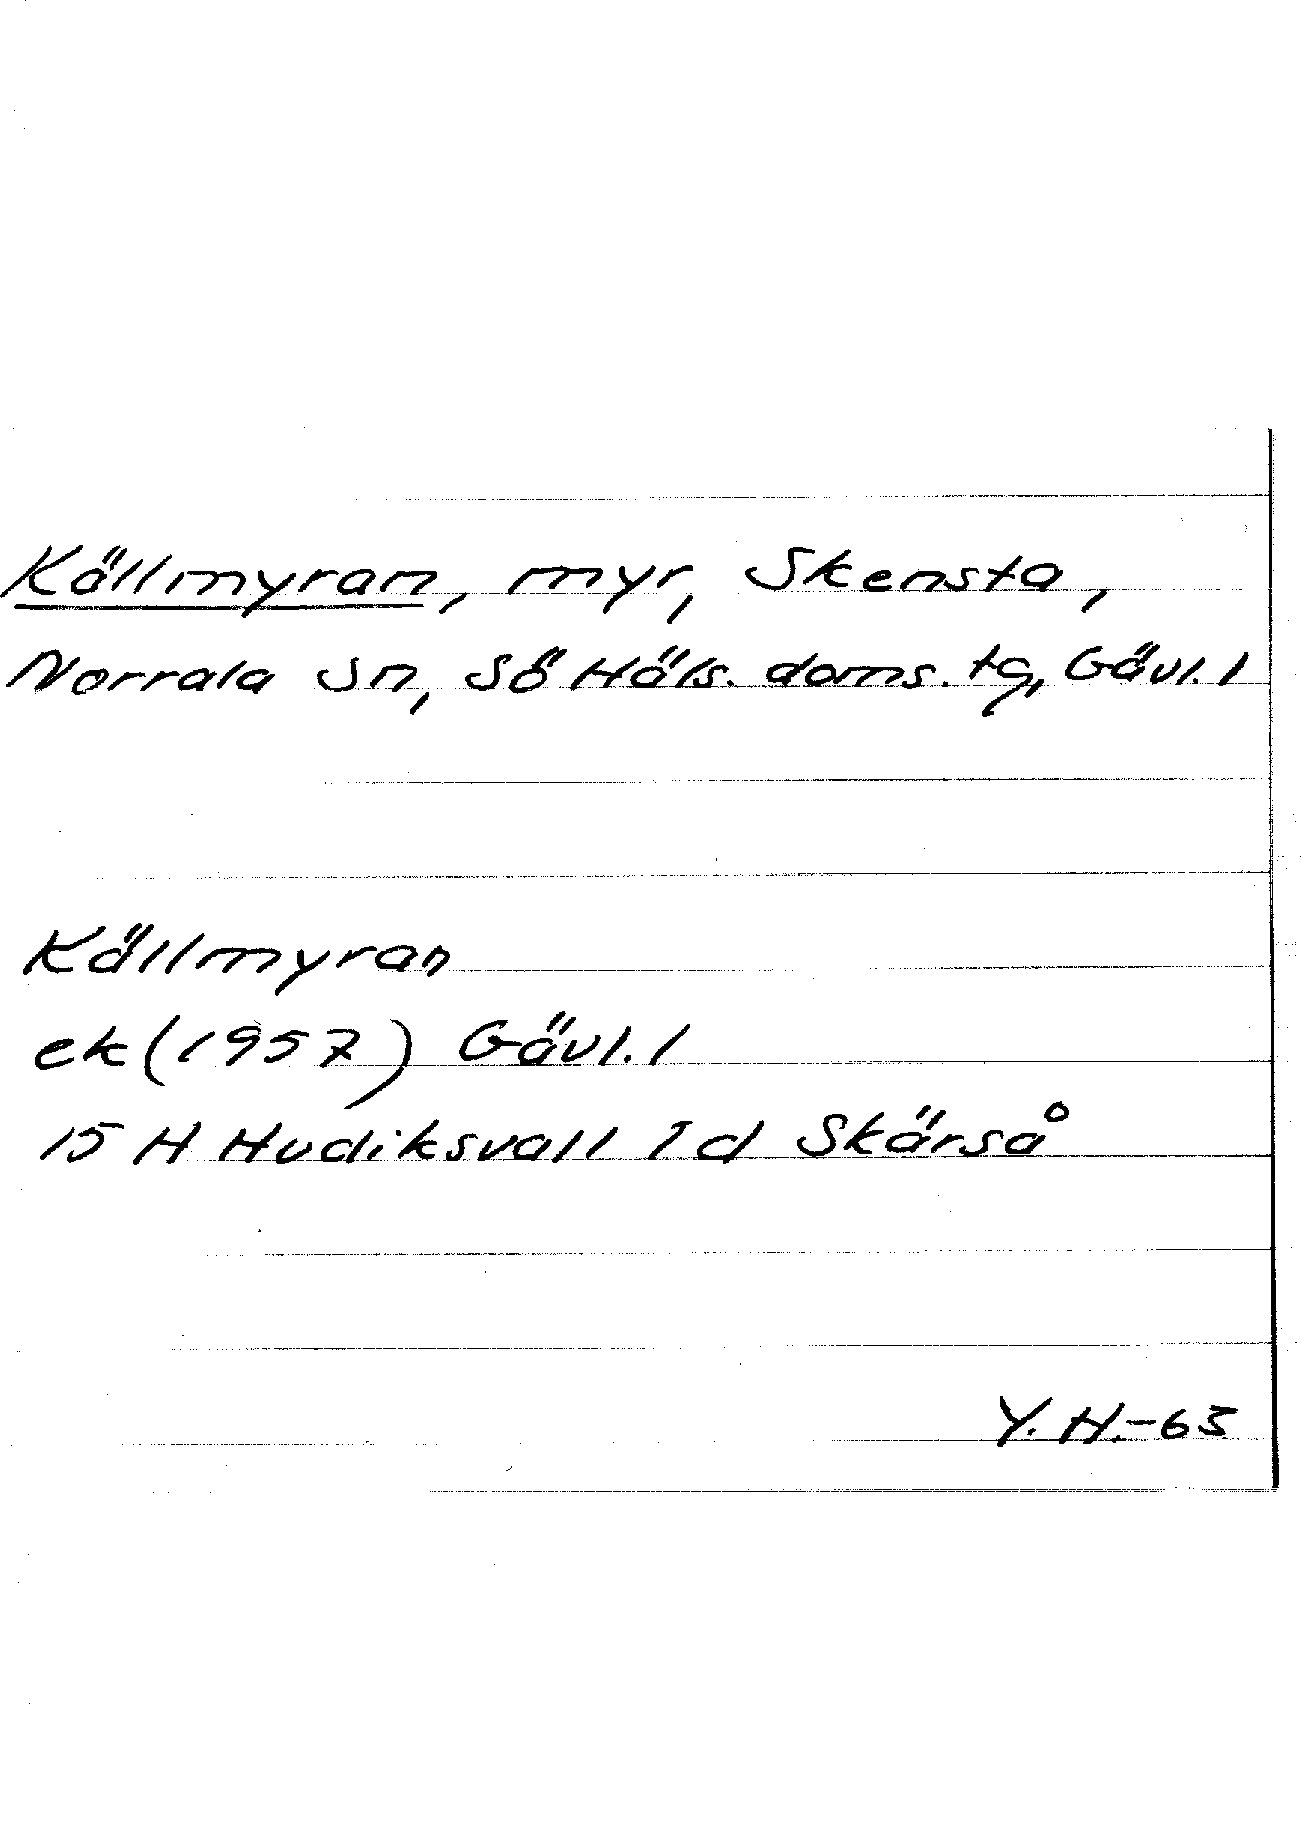 Källmyran, myr, Skensta,
Norrala Sn, Sö Häls. doms. tg, Gävl. l
Källmyran
ek (1957) Gävl. l
15 H Hudiksvall I d Skärså
Y. H.-63